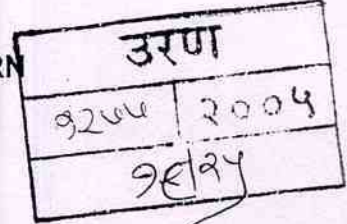 RN
उरण
१२५५ | २००५
१६/२५